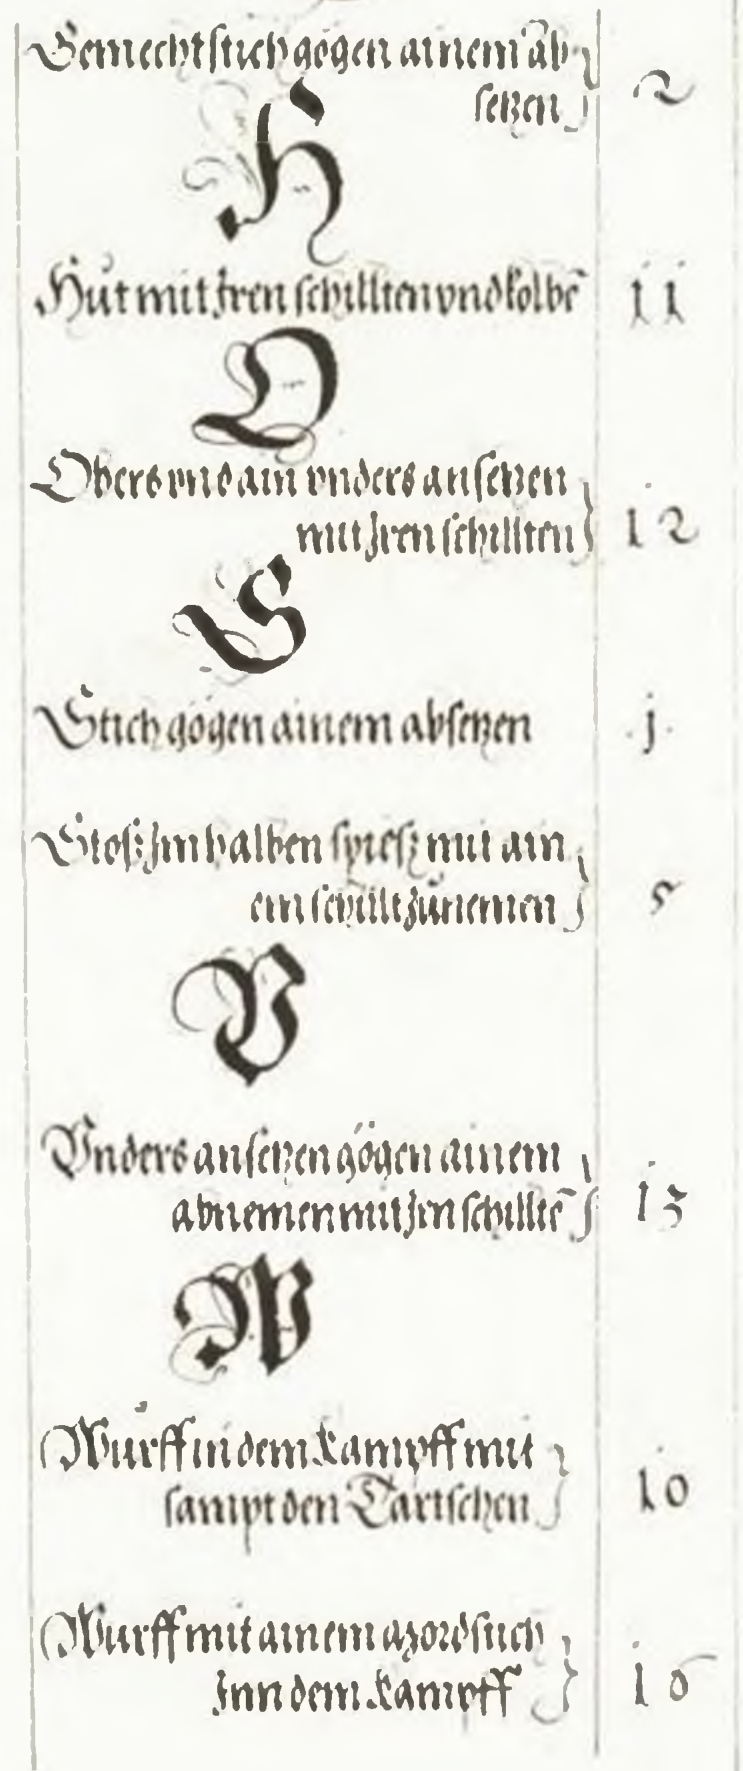 Gemechtstich gögen ainem ab
setzen 2
H
Hůt mit Jren schilltenn vnd kolbē 11
O
Obers vnd ain vnders ansetzen
mit Jren schillten 12
S
Stich gögen ainem absetzen .j.
Stosz Jm halben spiesz mit ain
em schillt zůnemen 5
V
Vnders ansetzen gögen ainem
abnemen mit Jrn schilltē 13
W
Wurff in dem kampff mit
sampt den Tartschen 10
Wurff mit ainem mordstich
Jnn dem kampff 16